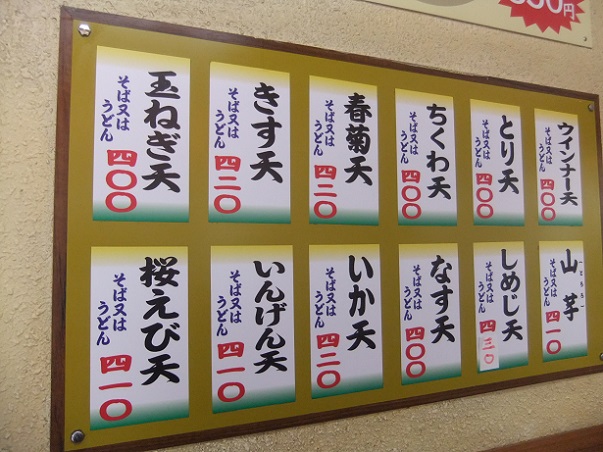 50円
ウインナー天
そば又は
うどん
四〇〇
とり天
そば又は
うどん
四〇〇
ちくわ天
そば又は
うどん
四〇〇
春菊天
そば又は
うどん
四二〇
きす天
そば又は
うどん
四二〇
玉ねぎ天
そば又は
うどん
四〇〇
山芋
(とろろ)
そば又は
うどん
四一〇
しめじ天
そば又は
うどん
四三〇
なす天
そば又は
うどん
四〇〇
いか天
そば又は
うどん
四二〇
いんげん天
そば又は
うどん
四一〇
桜えび天
そば又は
うどん
四一〇